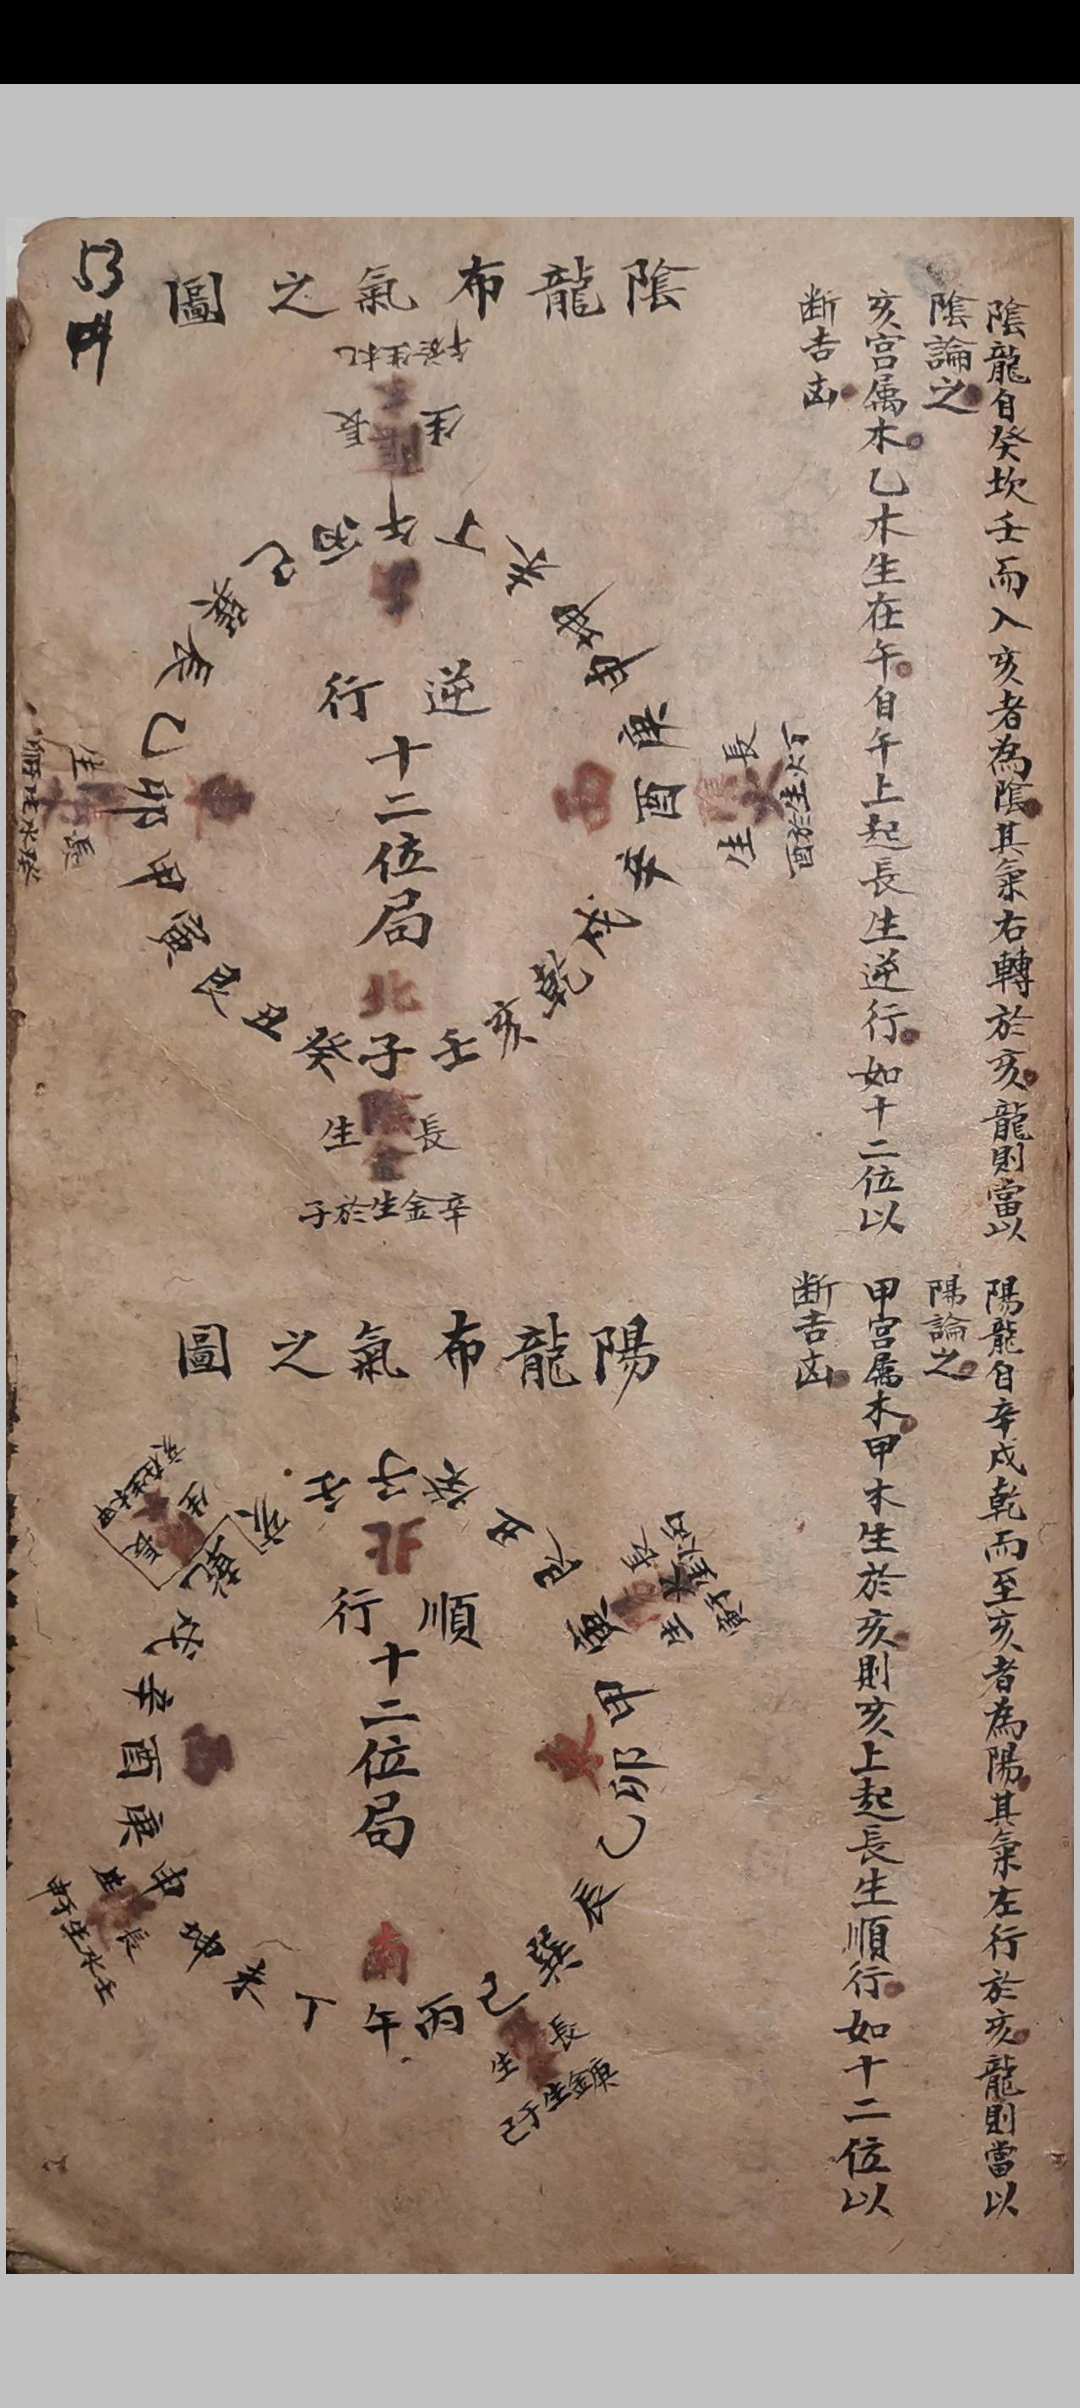 陰龍自癸坎壬而入亥者為陰其氣右轉於亥龍則當以
陰論之
亥宫属木乙木生在午自午上起長生逆行如十二位以
断吉凶
陰龍布氣之圖
乙木生於午
長生
午丁未坤申庚酉辛戌乾亥壬子癸丑艮寅甲卯乙辰巽巳丙
逆行
十二位局
西
北
長生
丁火生於酉
長生
辛金生於子
長生
53
陽龍自辛戌乾而至亥者為陽其氣左行於亥龍則當以
陽論之
甲宫属木甲木生於亥則亥上起長生順行如十二位以
断吉凶
陽龍布氣之圖
子癸丑艮寅甲卯乙辰巽巳丙午丁未坤申庚酉辛戌乾亥壬
北
順行
十二位局
南
長生
長生
庚金生于巳
長生
壬水生于申
長生